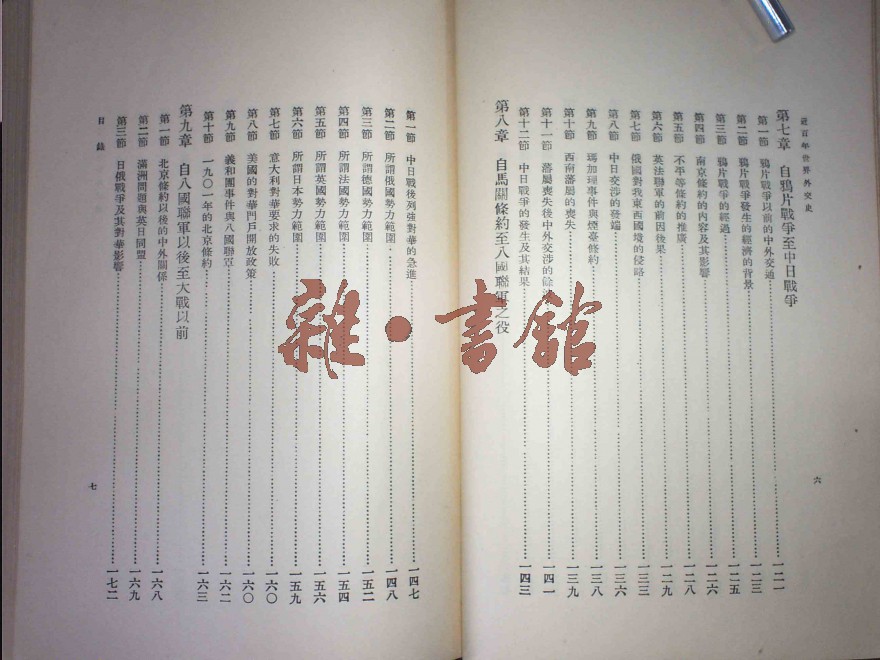 近百年世界外交史
第七章 自鴉片戰爭至中日戰爭
第一節 鴉片戰爭以前的中外交通……一二一
第二節 鴉片戰爭發生的經濟的背景……一二三
第三節 鴉片戰爭的經過……一二五
第四節 南京條約的內容及其影響……一二六
第五節 不平等條約的推廣……一二八
第六節 英法聯軍的前因後果……一二九
第七節 俄國對我東西國境的侵略……一三三
第八節 中日交涉的發端……一三六
第九節 瑪加理事件與煙臺條約……一三八
第十節 西南藩屬的喪失……一三九
第十一節 藩屬喪失後中外交涉的餘……一四一
第十二節 中日戰爭的發生及其結果……一四三
第八章 自馬關條約至八國聯軍之役
六
第一節 中日戰後列強對華的急進……一四七
第二節 所謂俄國勢力範圍……一四八
第三節 所謂德國勢力範圍……一五二
第四節 所謂法國勢力範圍……一五四
第五節 所謂英國勢力範圍……一五六
第六節 所謂日本勢力範圍……一五九
第七節 意大利對華要求的失敗……一六〇
第八節 美國的對華門戶開放政策……一六〇
第九節 義和團事件與八國聯軍……一六二
第十節 一九〇一年的北京條約……一六三
第九章 自八國聯軍以後至大戰以前
第一節 北京條約以後的中外關係……一六八
第二節 滿洲問題與英日同盟……一六九
第三節 日俄戰爭及其對華影響……一七二
目錄
七
雜·書館